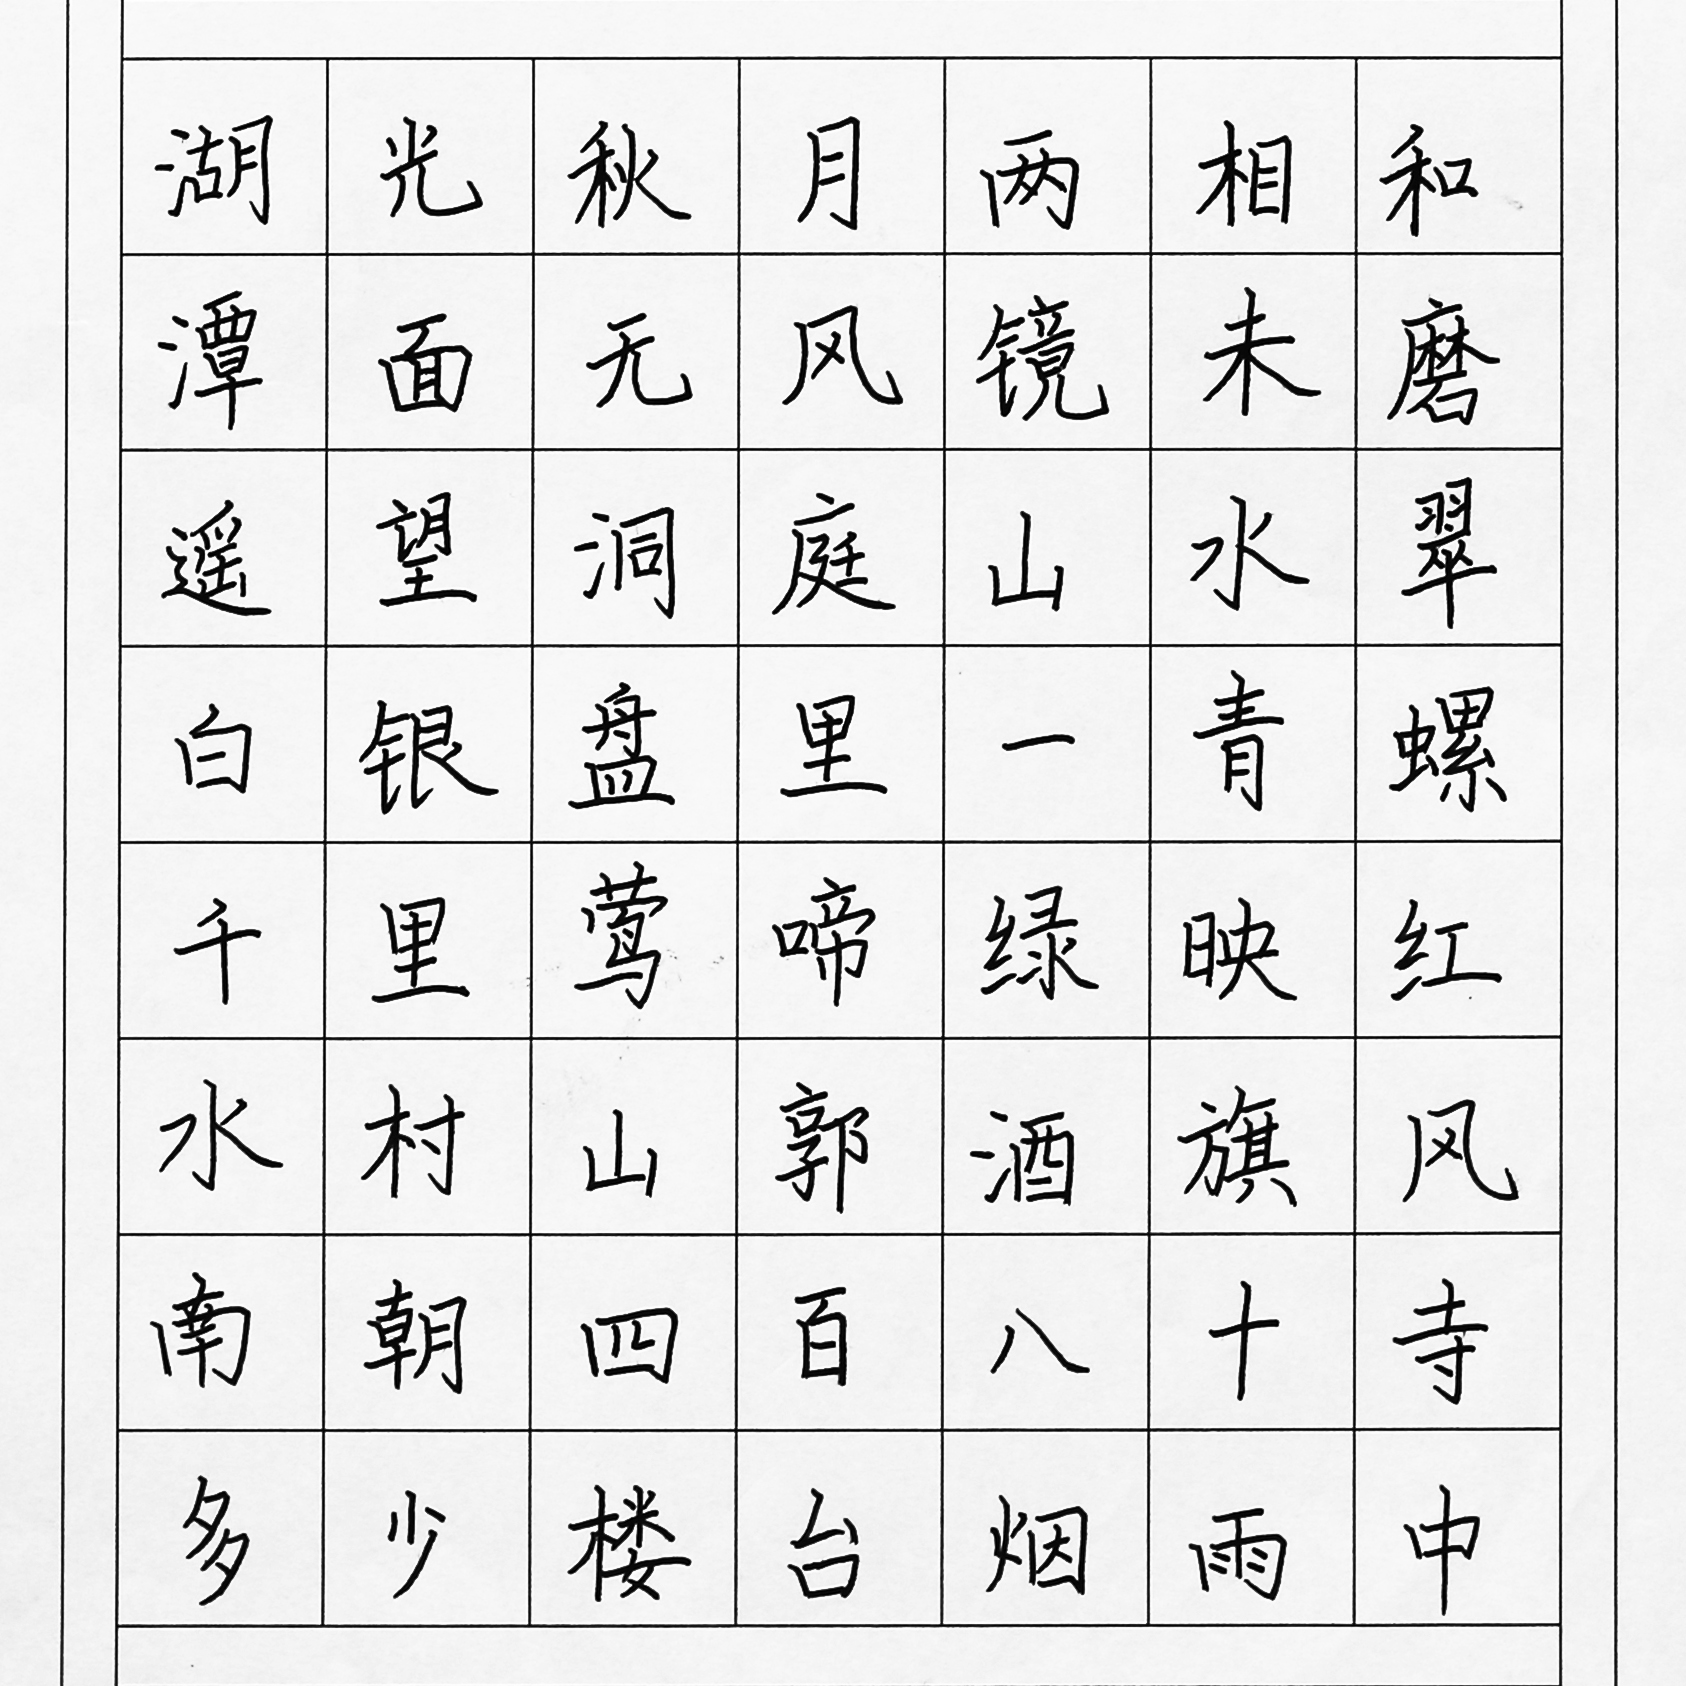 湖光秋月两相和
潭面无风镜未磨
遥望洞庭山水翠
白银盘里一青螺
千里莺啼绿映红
水村山郭酒旗风
南朝四百八十寺
多少楼台烟雨中